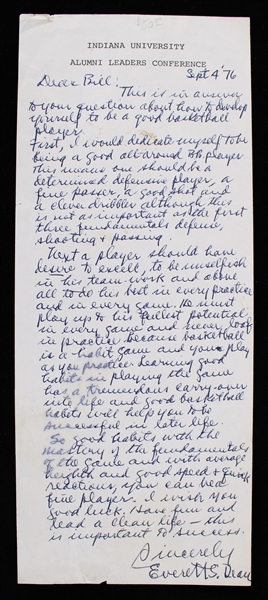 INDIANA UNIVERSITY
ALUMNI LEADERS CONFERENCE
Sept 4 '76
Dear Bill:
This is in answer
to your question about how to develop
yourself to be a good basketball
player.
First, I would dedicate myself to be
being a good all around B.B. player
This means one should be a
determined defensive player, a
fine passer, a good shot and
a clever dribbler although this
is not as important as the first
three fundamentals defense,
shooting & passing.
Next a player should have
desire to excell, to be unselfish
in his team work and above
all to do his best in every practice
and in every game. He must
play up to his fullest potential
in every game and never loaf
in practice because basketball
is a habit game and you play
as you practice. Learning good
habits in playing the game
has a tremendous carry-over
into life and good basketball
habits will help you to be
successful in later life.
So good habits with the
mastery of the fundamentals
of the game and with average
height and good speed & quick
reactions, you can be a
fine player. I wish you
good luck. Have fun and
lead a clean life - this
is important to success.
Sincerely
Everett S. Dean